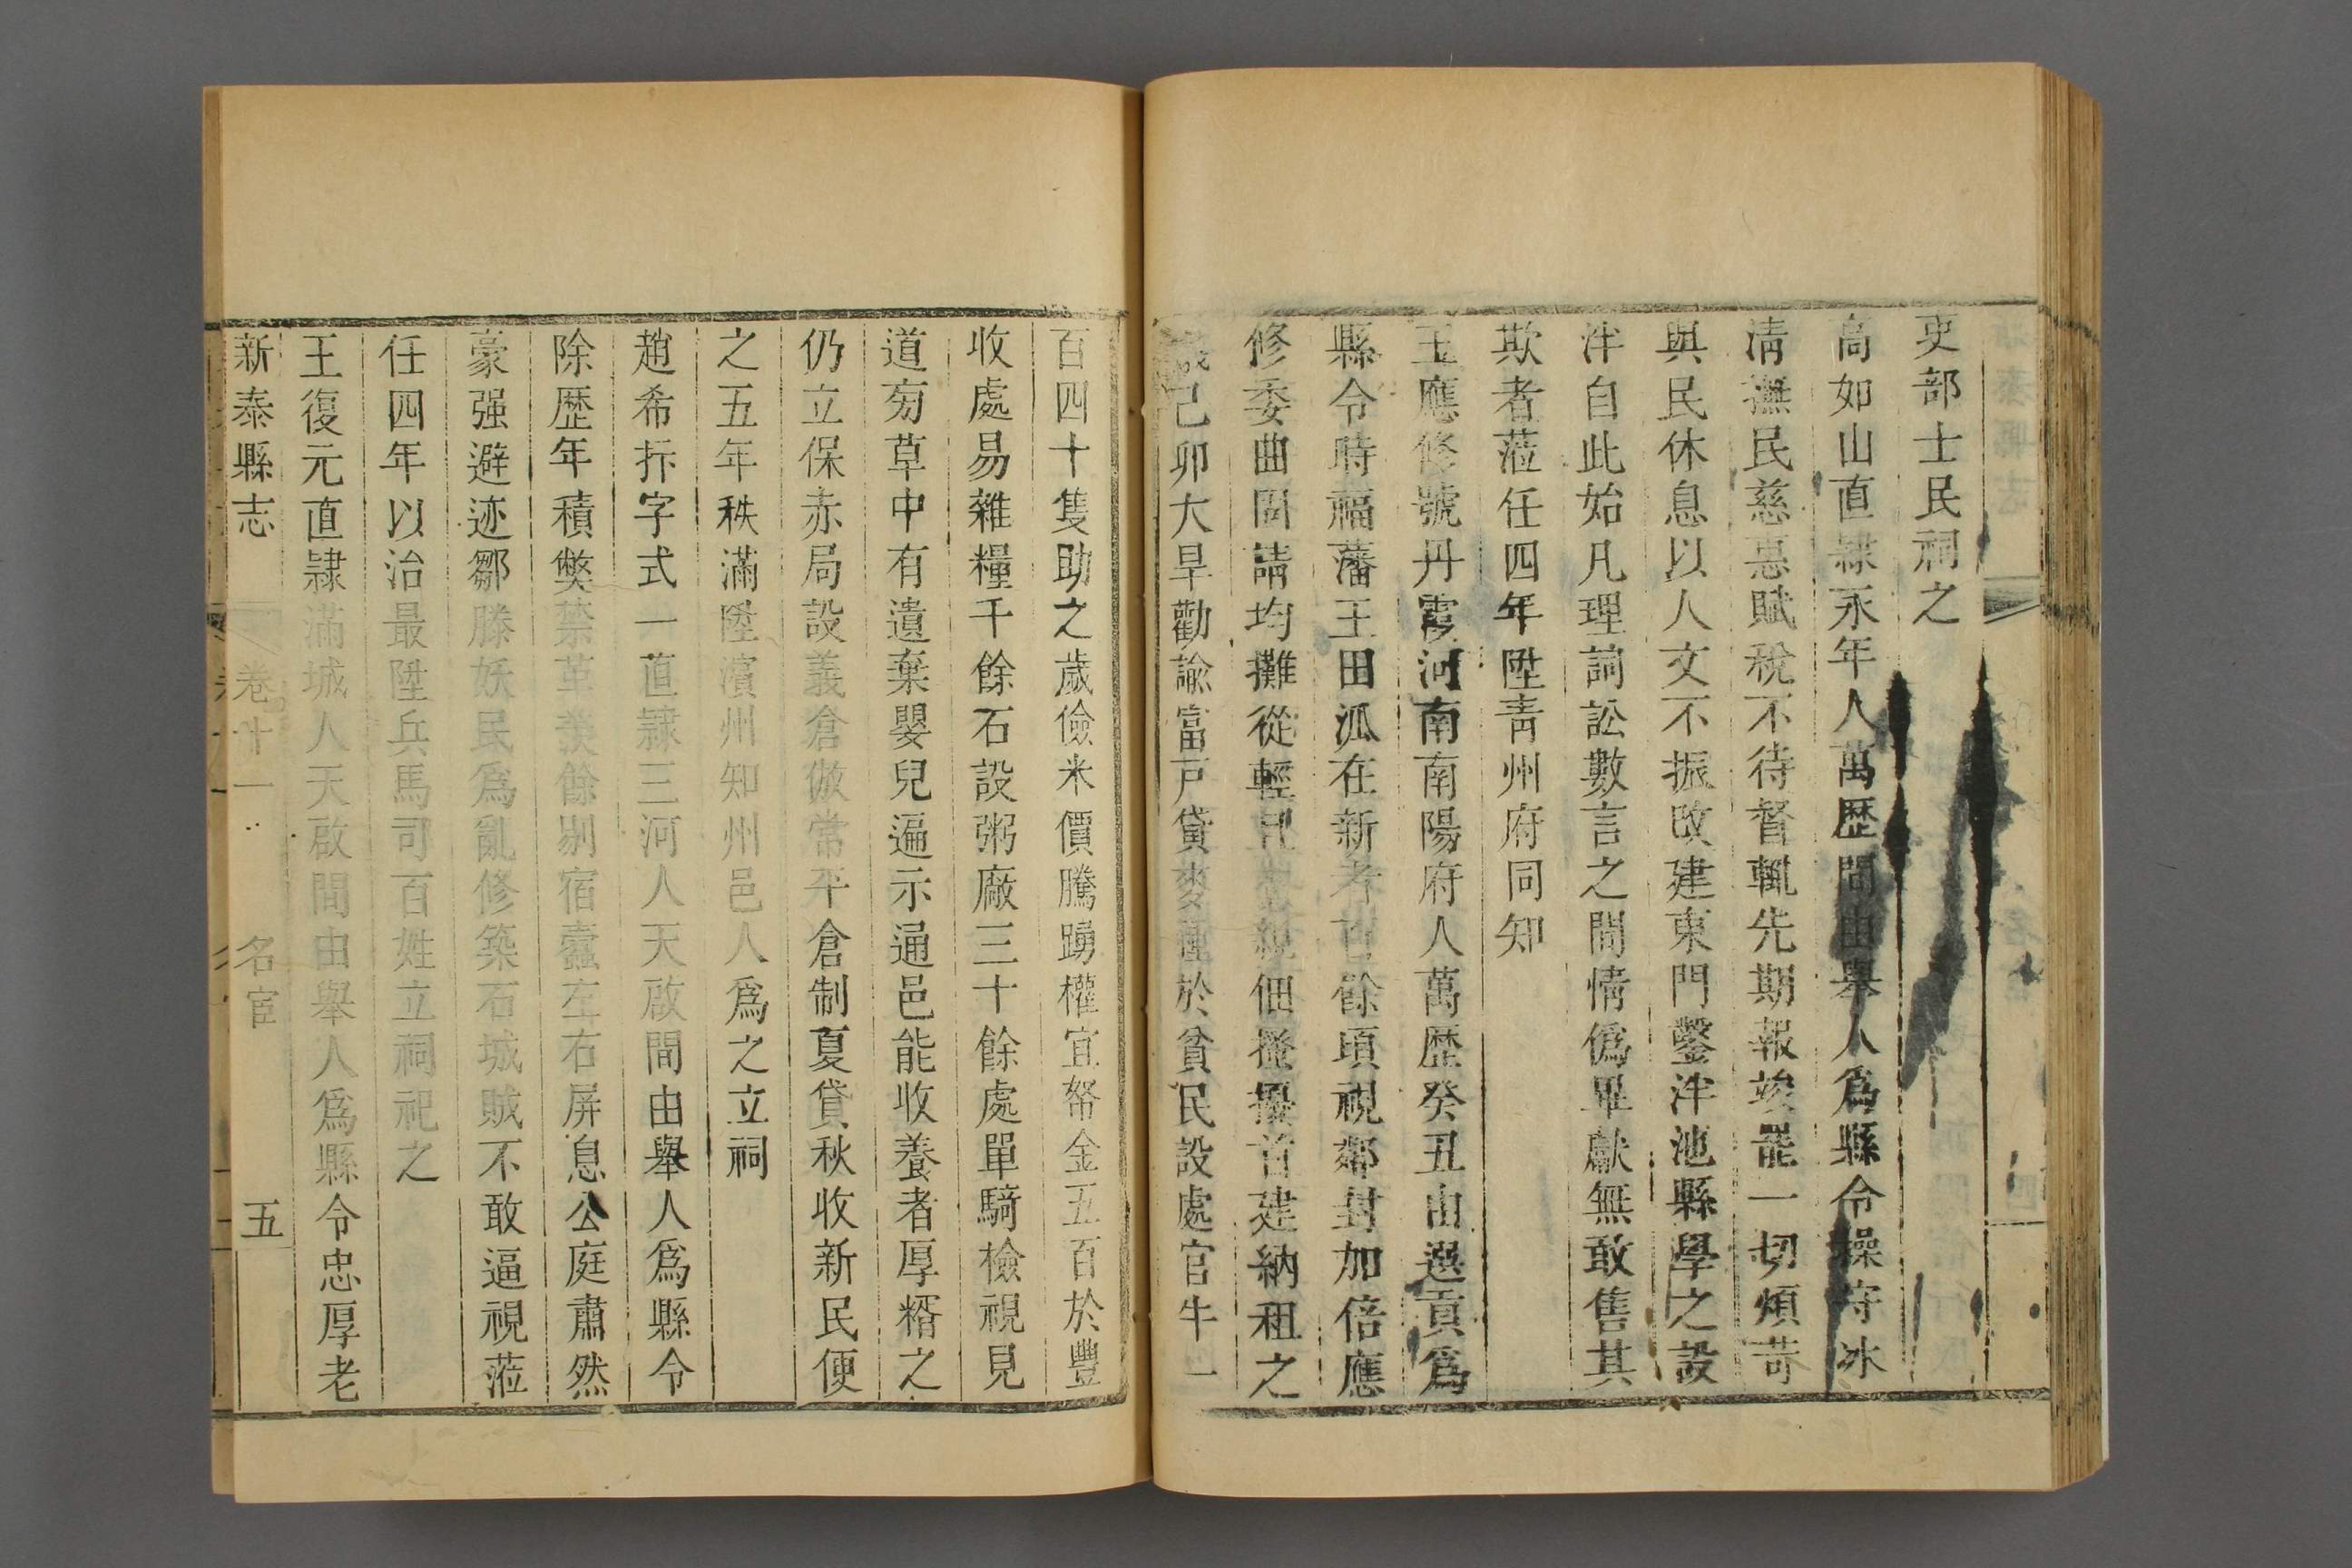 吏部士民祠之
高如山直隸永年人萬歴間由舉人爲縣令操守冰
淸撫民慈惠賦稅不待督輒先期報竣罷一切煩苛
與民休息以人文不振改建東門鑿泮池縣學之設
泮自此始凡理詞訟數言之間情僞畢獻無敢售其
欺者蒞任四年陞青州府同知
王應修號丹霞河南南陽府人萬歴癸丑由選貢爲
縣令時福藩王田泒在新者百餘頃視鄰封加倍應
修委曲闾請均攤從輕佃擾首建納租之
歲己卯大旱勸諭富戸貸麥種於貧民設處官牛一
百四十隻助之歲儉米價騰踴權宜帑金五百於豐
收處易雜糧千餘石設粥廠三十餘處單騎檢視見
道旁草中有遺棄嬰兒遍示通邑能收養者厚糈之
仍立保赤局設義倉倣常平倉制夏貸秋收新民便
之五年秩滿陞濱州知州邑人爲之立祠
趙希抃字式一直隸三河人天啟間由舉人爲縣令
除歴年積獘禁革羡餘剔宿蠹左右屏息公庭肅然
豪强避迹鄒滕妖民爲亂修築石城賊不敢逼視蒞
任四年以治最陞兵馬司百姓立祠祀之
王復元直隸滿城人天啟間由舉人爲縣令忠厚老
新泰縣志 卷十一 名宦 五